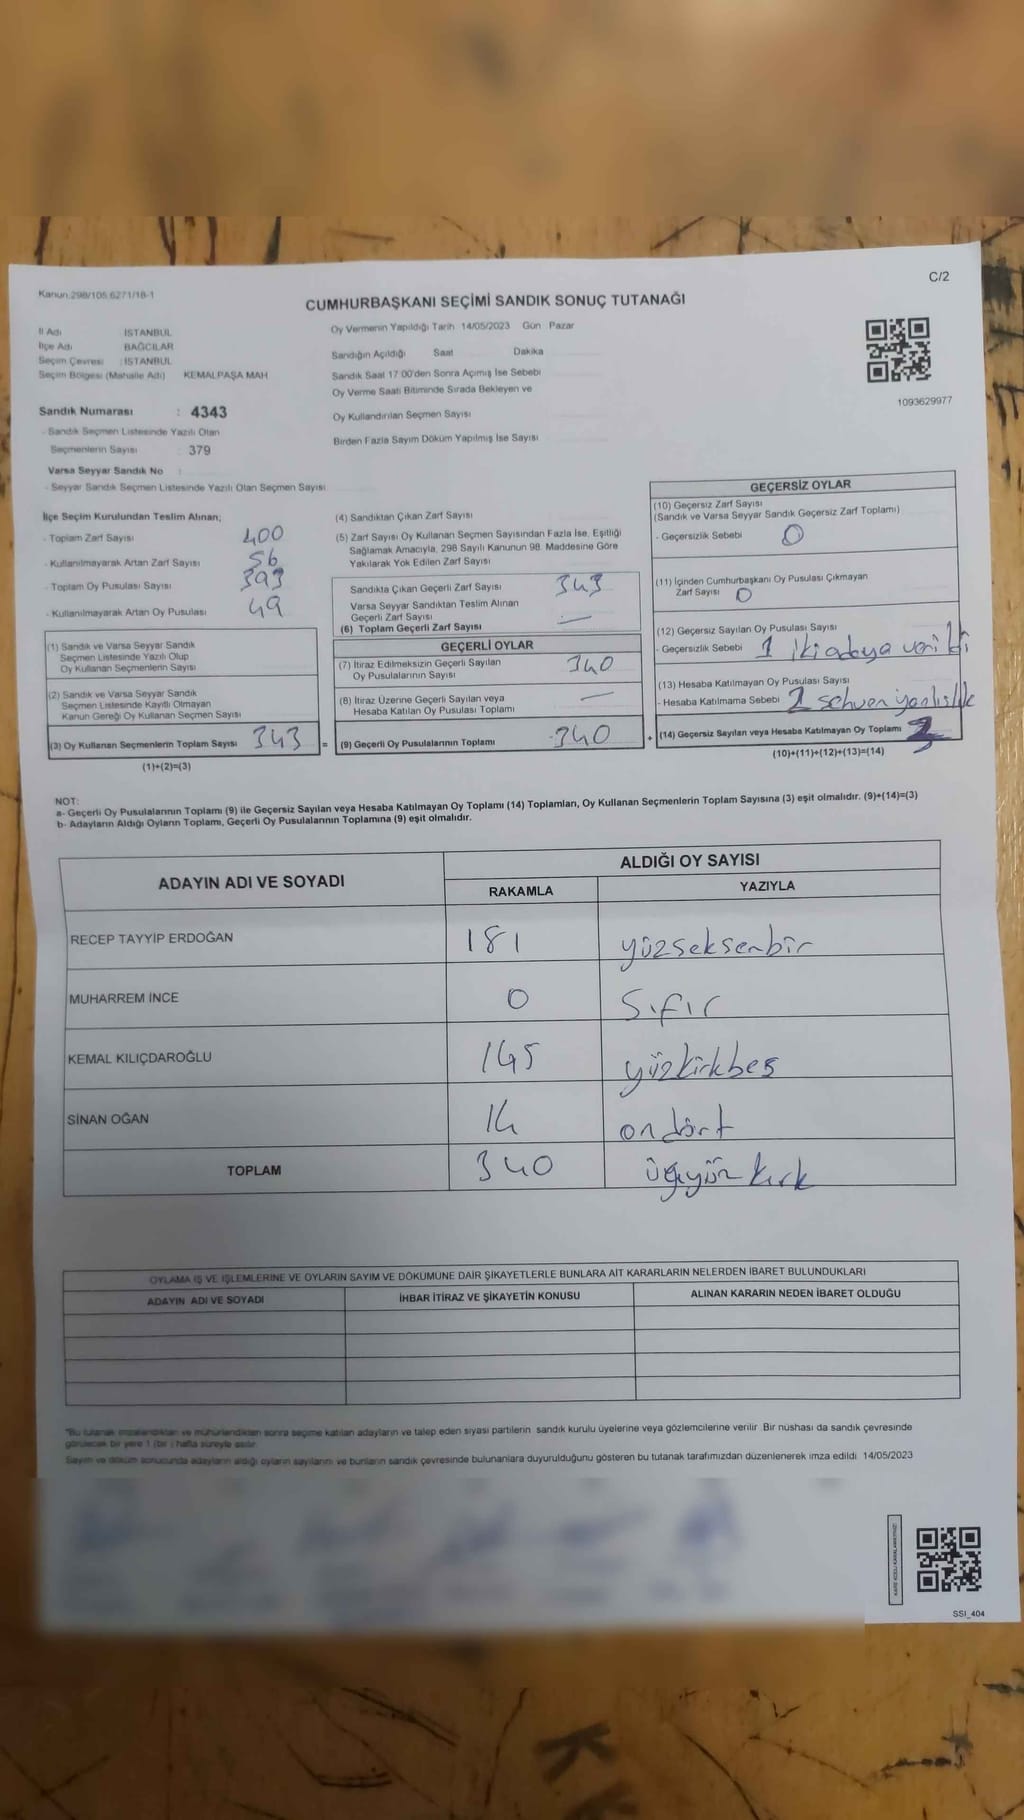 C/2
Kanun:298/105 6271/18-1
CUMHURBAŞKANI SEÇİMİ SANDIK SONUÇ TUTANAĞI
İl Adı : İSTANBUL
İlçe Adı : BAĞCILAR
Seçim Çevresi : İSTANBUL
Seçim Bölgesi (Mahalle Adı) KEMALPAŞA MAH
Sandık Numarası : 4343
- Sandık Seçmen Listesinde Yazılı Olan
Seçmenlerin Sayısı : 379
Varsa Seyyar Sandık No :
- Seyyar Sandık Seçmen Listesinde Yazılı Olan Seçmen Sayısı
Oy Vermenin Yapıldığı Tarih 14/05/2023 Gün Pazar
Sandığın Açıldığı Saat Dakika
Sandık Saat 17:00'den Sonra Açımış İse Sebebi
Oy Verme Saati Bitiminde Sırada Bekleyen ve
Oy Kullandırılan Seçmen Sayısı
Birden Fazla Sayım Döküm Yapılmış İse Sayısı
1093629977
İlçe Seçim Kurulundan Teslim Alınan;
- Toplam Zarf Sayısı 400
- Kullanılmayarak Artan Zarf Sayısı 56
- Toplam Oy Pusulası Sayısı 393
- Kullanılmayarak Artan Oy Pusulası 49
(1) Sandık ve Varsa Seyyar Sandık
Seçmen Listesinde Yazılı Olup
Oy Kullanan Seçmenlerin Sayısı
(2) Sandık ve Varsa Seyyar Sandık
Seçmen Listesinde Kayıtlı Olmayan
Kanun Gereği Oy Kullanan Seçmen Sayısı
(3) Oy Kullanan Seçmenlerin Toplam Sayısı 343 =
(1)+(2)=(3)
(4) Sandıktan Çıkan Zarf Sayısı
(5) Zarf Sayısı Oy Kullanan Seçmen Sayısından Fazla İse, Eşitliği
Sağlamak Amacıyla, 298 Sayılı Kanunun 98. Maddesine Göre
Yakılarak Yok Edilen Zarf Sayısı
Sandıkta Çıkan Geçerli Zarf Sayısı 343
Varsa Seyyar Sandıktan Teslim Alınan
Geçerli Zarf Sayısı —
(6) Toplam Geçerli Zarf Sayısı
GEÇERLİ OYLAR
(7) İtiraz Edilmeksizin Geçerli Sayılan
Oy Pusulalarının Sayısı 340
(8) İtiraz Üzerine Geçerli Sayılan veya
Hesaba Katılan Oy Pusulası Toplamı —
(9) Geçerli Oy Pusulalarının Toplamı 340 +
GEÇERSİZ OYLAR
(10) Geçersiz Zarf Sayısı
(Sandık ve Varsa Seyyar Sandık Geçersiz Zarf Toplamı)
- Geçersizlik Sebebi 0
(11) İçinden Cumhurbaşkanı Oy Pusulası Çıkmayan
Zarf Sayısı 0
(12) Geçersiz Sayılan Oy Pusulası Sayısı
- Geçersizlik Sebebi 1 iki adaya verildi
(13) Hesaba Katılmayan Oy Pusulası Sayısı
- Hesaba Katılmama Sebebi 2 sehven yanlışlık
(14) Geçersiz Sayılan veya Hesaba Katılmayan Oy Toplamı 3
(10)+(11)+(12)+(13)=(14)
NOT:
a- Geçerli Oy Pusulalarının Toplamı (9) ile Geçersiz Sayılan veya Hesaba Katılmayan Oy Toplamı (14) Toplamları, Oy Kullanan Seçmenlerin Toplam Sayısına (3) eşit olmalıdır. (9)+(14)=(3)
b- Adayların Aldığı Oyların Toplamı, Geçerli Oy Pusulalarının Toplamına (9) eşit olmalıdır.
ADAYIN ADI VE SOYADI ALDIĞI OY SAYISI
RAKAMLA YAZIYLA
RECEP TAYYİP ERDOĞAN 181 yüzseksenbir
MUHARREM İNCE 0 Sıfır
KEMAL KILIÇDAROĞLU 145 yüzkırkbeş
SİNAN OĞAN 14 ondört
TOPLAM 340 üçyüzkırk
OYLAMA İŞ VE İŞLEMLERİNE VE OYLARIN SAYIM VE DÖKÜMÜNE DAİR ŞİKAYETLERLE BUNLARA AİT KARARLARIN NELERDEN İBARET BULUNDUKLARI
ADAYIN ADI VE SOYADI İHBAR İTİRAZ VE ŞİKAYETİN KONUSU ALINAN KARARIN NEDEN İBARET OLDUĞU
*Bu tutanak imzalandıktan ve mühürlendikten sonra seçime katılan adayların ve talep eden siyasi partilerin sandık kurulu üyelerine veya gözlemcilerine verilir Bir nüshası da sandık çevresinde
görülecek bir yere 1 (bir) hafta süreyle asılır.
Sayım ve döküm sonucunda adayların aldığı oyların sayılarını ve bunların sandık çevresinde bulunanlara duyurulduğunu gösteren bu tutanak tarafımızdan düzenlenerek imza edildi 14/05/2023
SSI_404